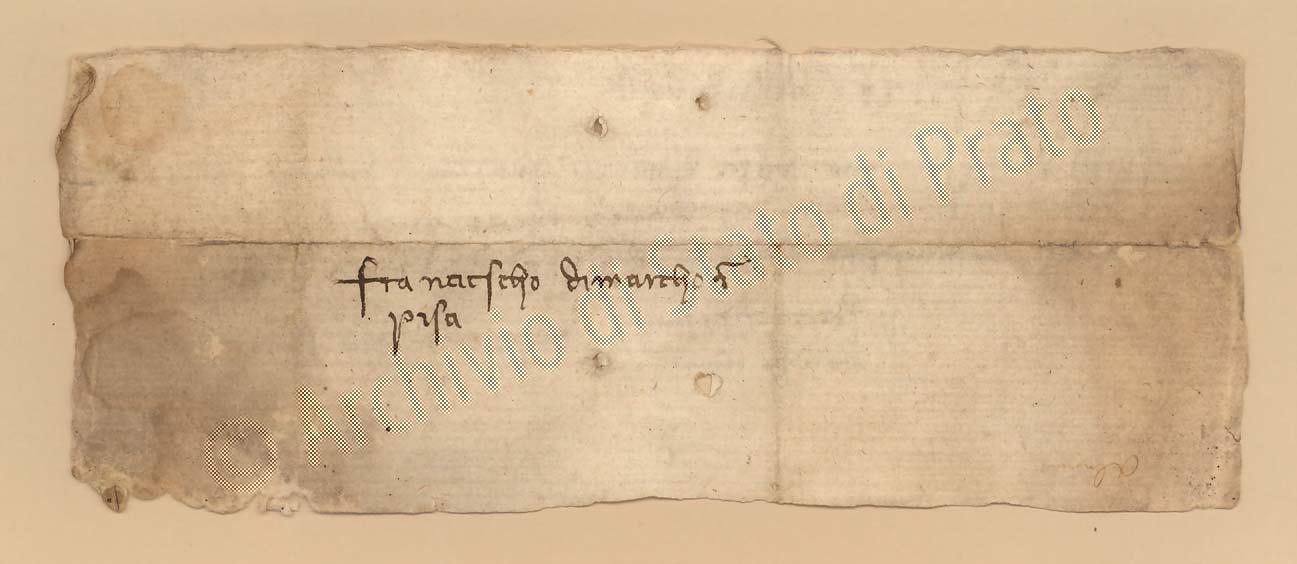 franacscho dimarcho in
pisa
© Archivio di Stato di Prato